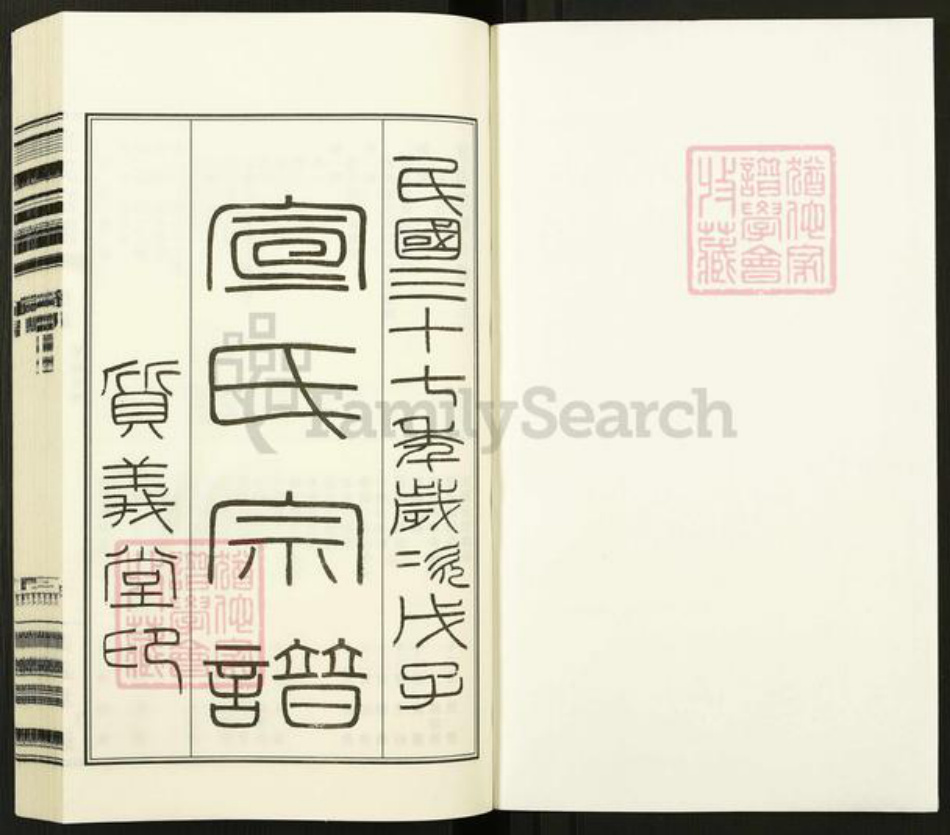 民國三十七年歲次戊子
宣氏宗譜
質義堂印
猶他家
譜學會
收藏
FamilySearch